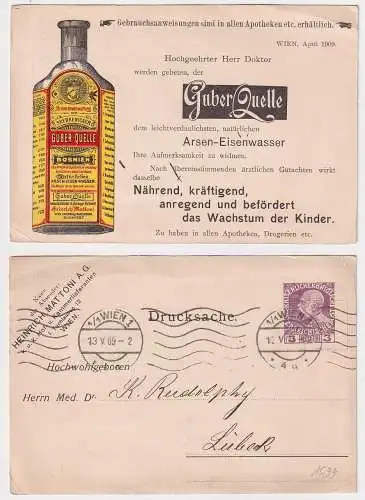 Gebrauchsanweisungen sind in allen Apotheken etc. erhältlich.
WIEN, April 1909.
Hochgeehrter Herr Doktor
werden gebeten, der
Guber Quelle
dem leichtverdaulichsten, natürlichen
Arsen-Eisenwasser
Ihre Aufmerksamkeit zu widmen.
Nach übereinstimmenden ärztlichen Gutachten wirkt
dasselbe
Nährend, kräftigend,
anregend und befördert
das Wachstum der Kinder.
Zu haben in allen Apotheken, Drogerien etc.
GUBER-QUELLE
BOSNIEN
Guber Quelle
Heinrich Mattoni
Name
des Absenders:
HEINRICH MATTONI A.G.
WIEN.
1/1 WIEN 1
13 V 09 - 2
Drucksache.
1/1 WIEN
3 3
Hochwohlgeboren
Herrn Med. Dr K. Rudolphy
Lübeck